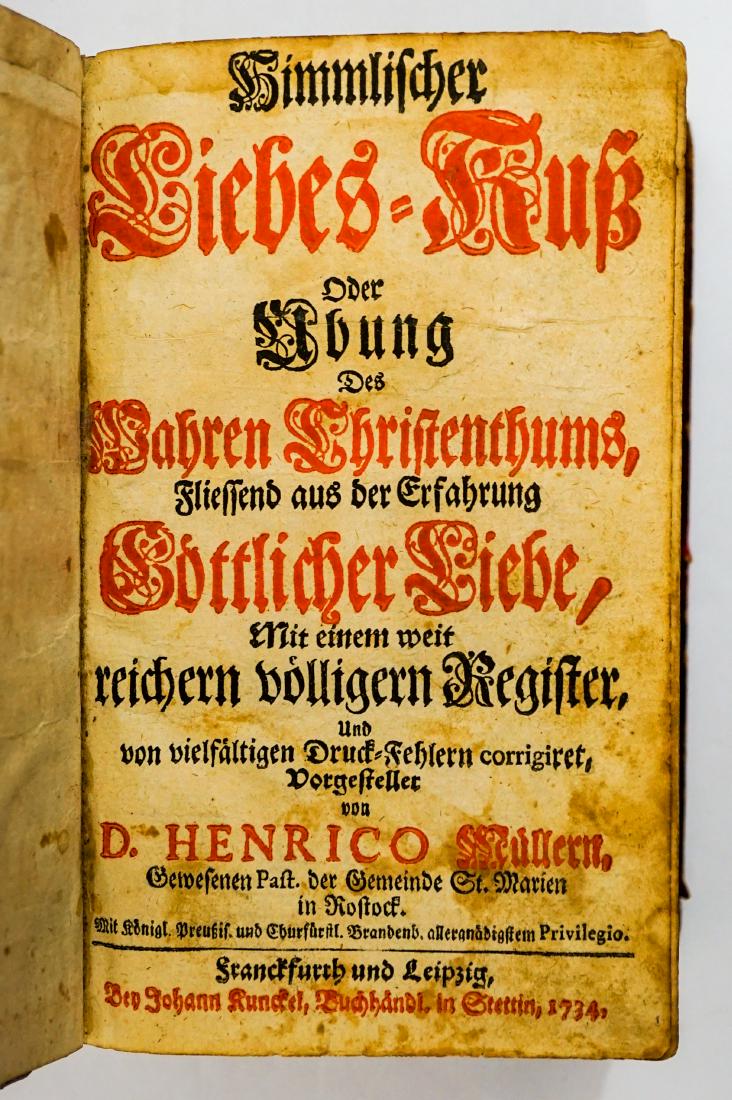 Himmlischer
Liebes-Kuß
Oder
Übung
Des
Wahren Christenthums,
Fliessend aus der Erfahrung
Göttlicher Liebe,
Mit einem weit
reichern völligern Register,
Und
von vielfältigen Druck-Fehlern corrigiret,
Vorgestellet
von
D. HENRICO Müllern,
Gewesenen Past. der Gemeinde St. Marien
in Rostock.
Mit Königl. Preußis. und Churfürstl. Brandenb. allergnädigstem Privilegio.
Franckfurth und Leipzig,
Bey Johann Kunckel, Buchhändl. in Stettin, 1734.